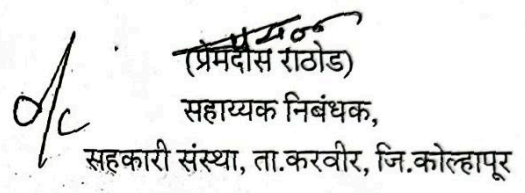 (प्रेमदास राठोड)
o/c सहाय्यक निबंधक,
सहकारी संस्था, ता.करवीर, जि.कोल्हापूर